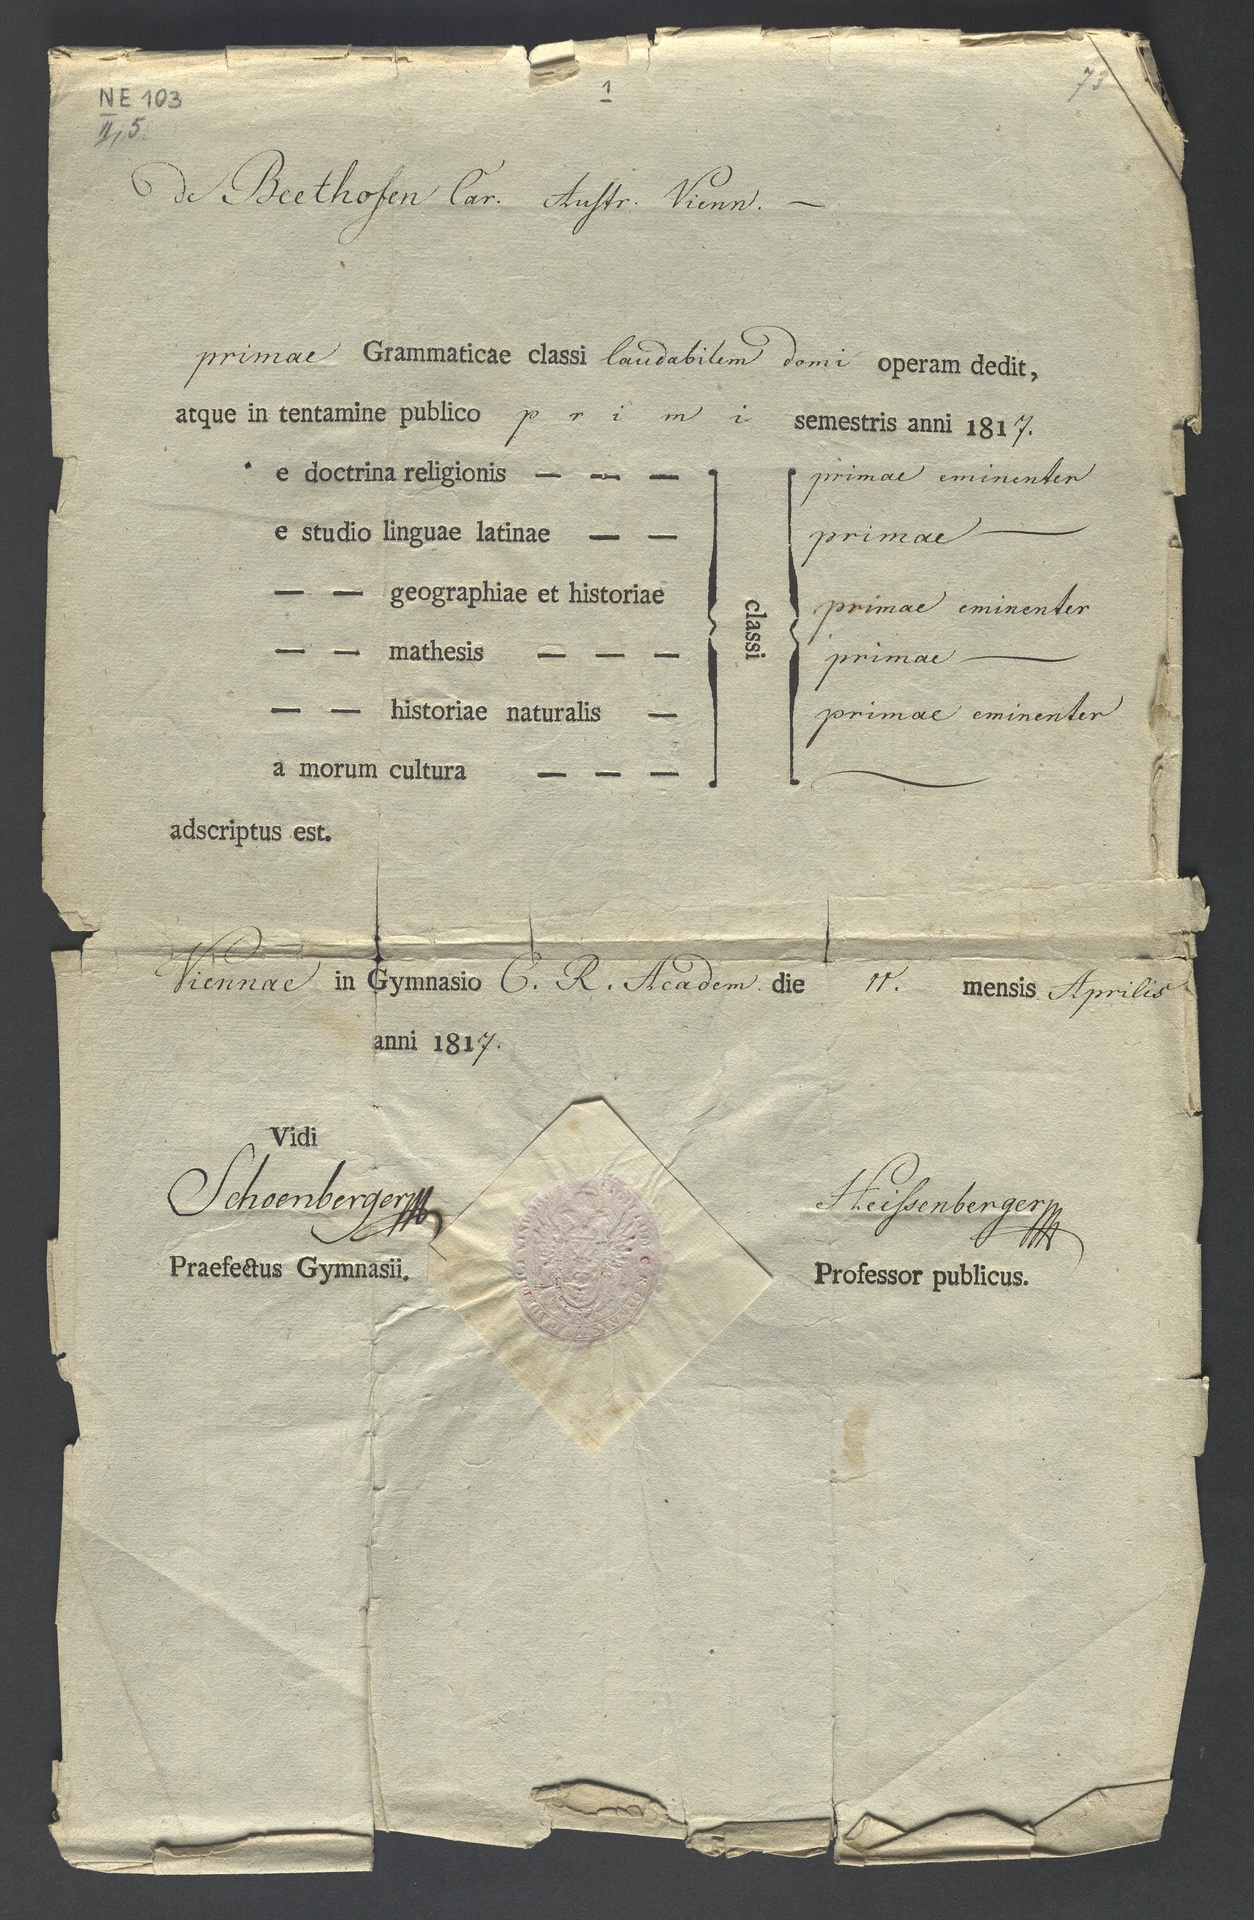 NE 103
II, 5.
1
73
de Beethofen Car. Austr. Vienn. —
primae Grammaticae classi laudabilem domi operam dedit,
atque in tentamine publico p r i m i semestris anni 1817.
e doctrina religionis — — — primae eminenter
e studio linguae latinae — — primae —
— — geographiae et historiae primae eminenter
classi
— — mathesis — — — primae —
— — historiae naturalis — primae eminenter
a morum cultura — — — —
adscriptus est.
Viennae in Gymnasio C. R. Academ. die 11. mensis Aprilis
anni 1817.
Vidi
Schoenberger
Heissenberger
Praefectus Gymnasii.
Professor publicus.